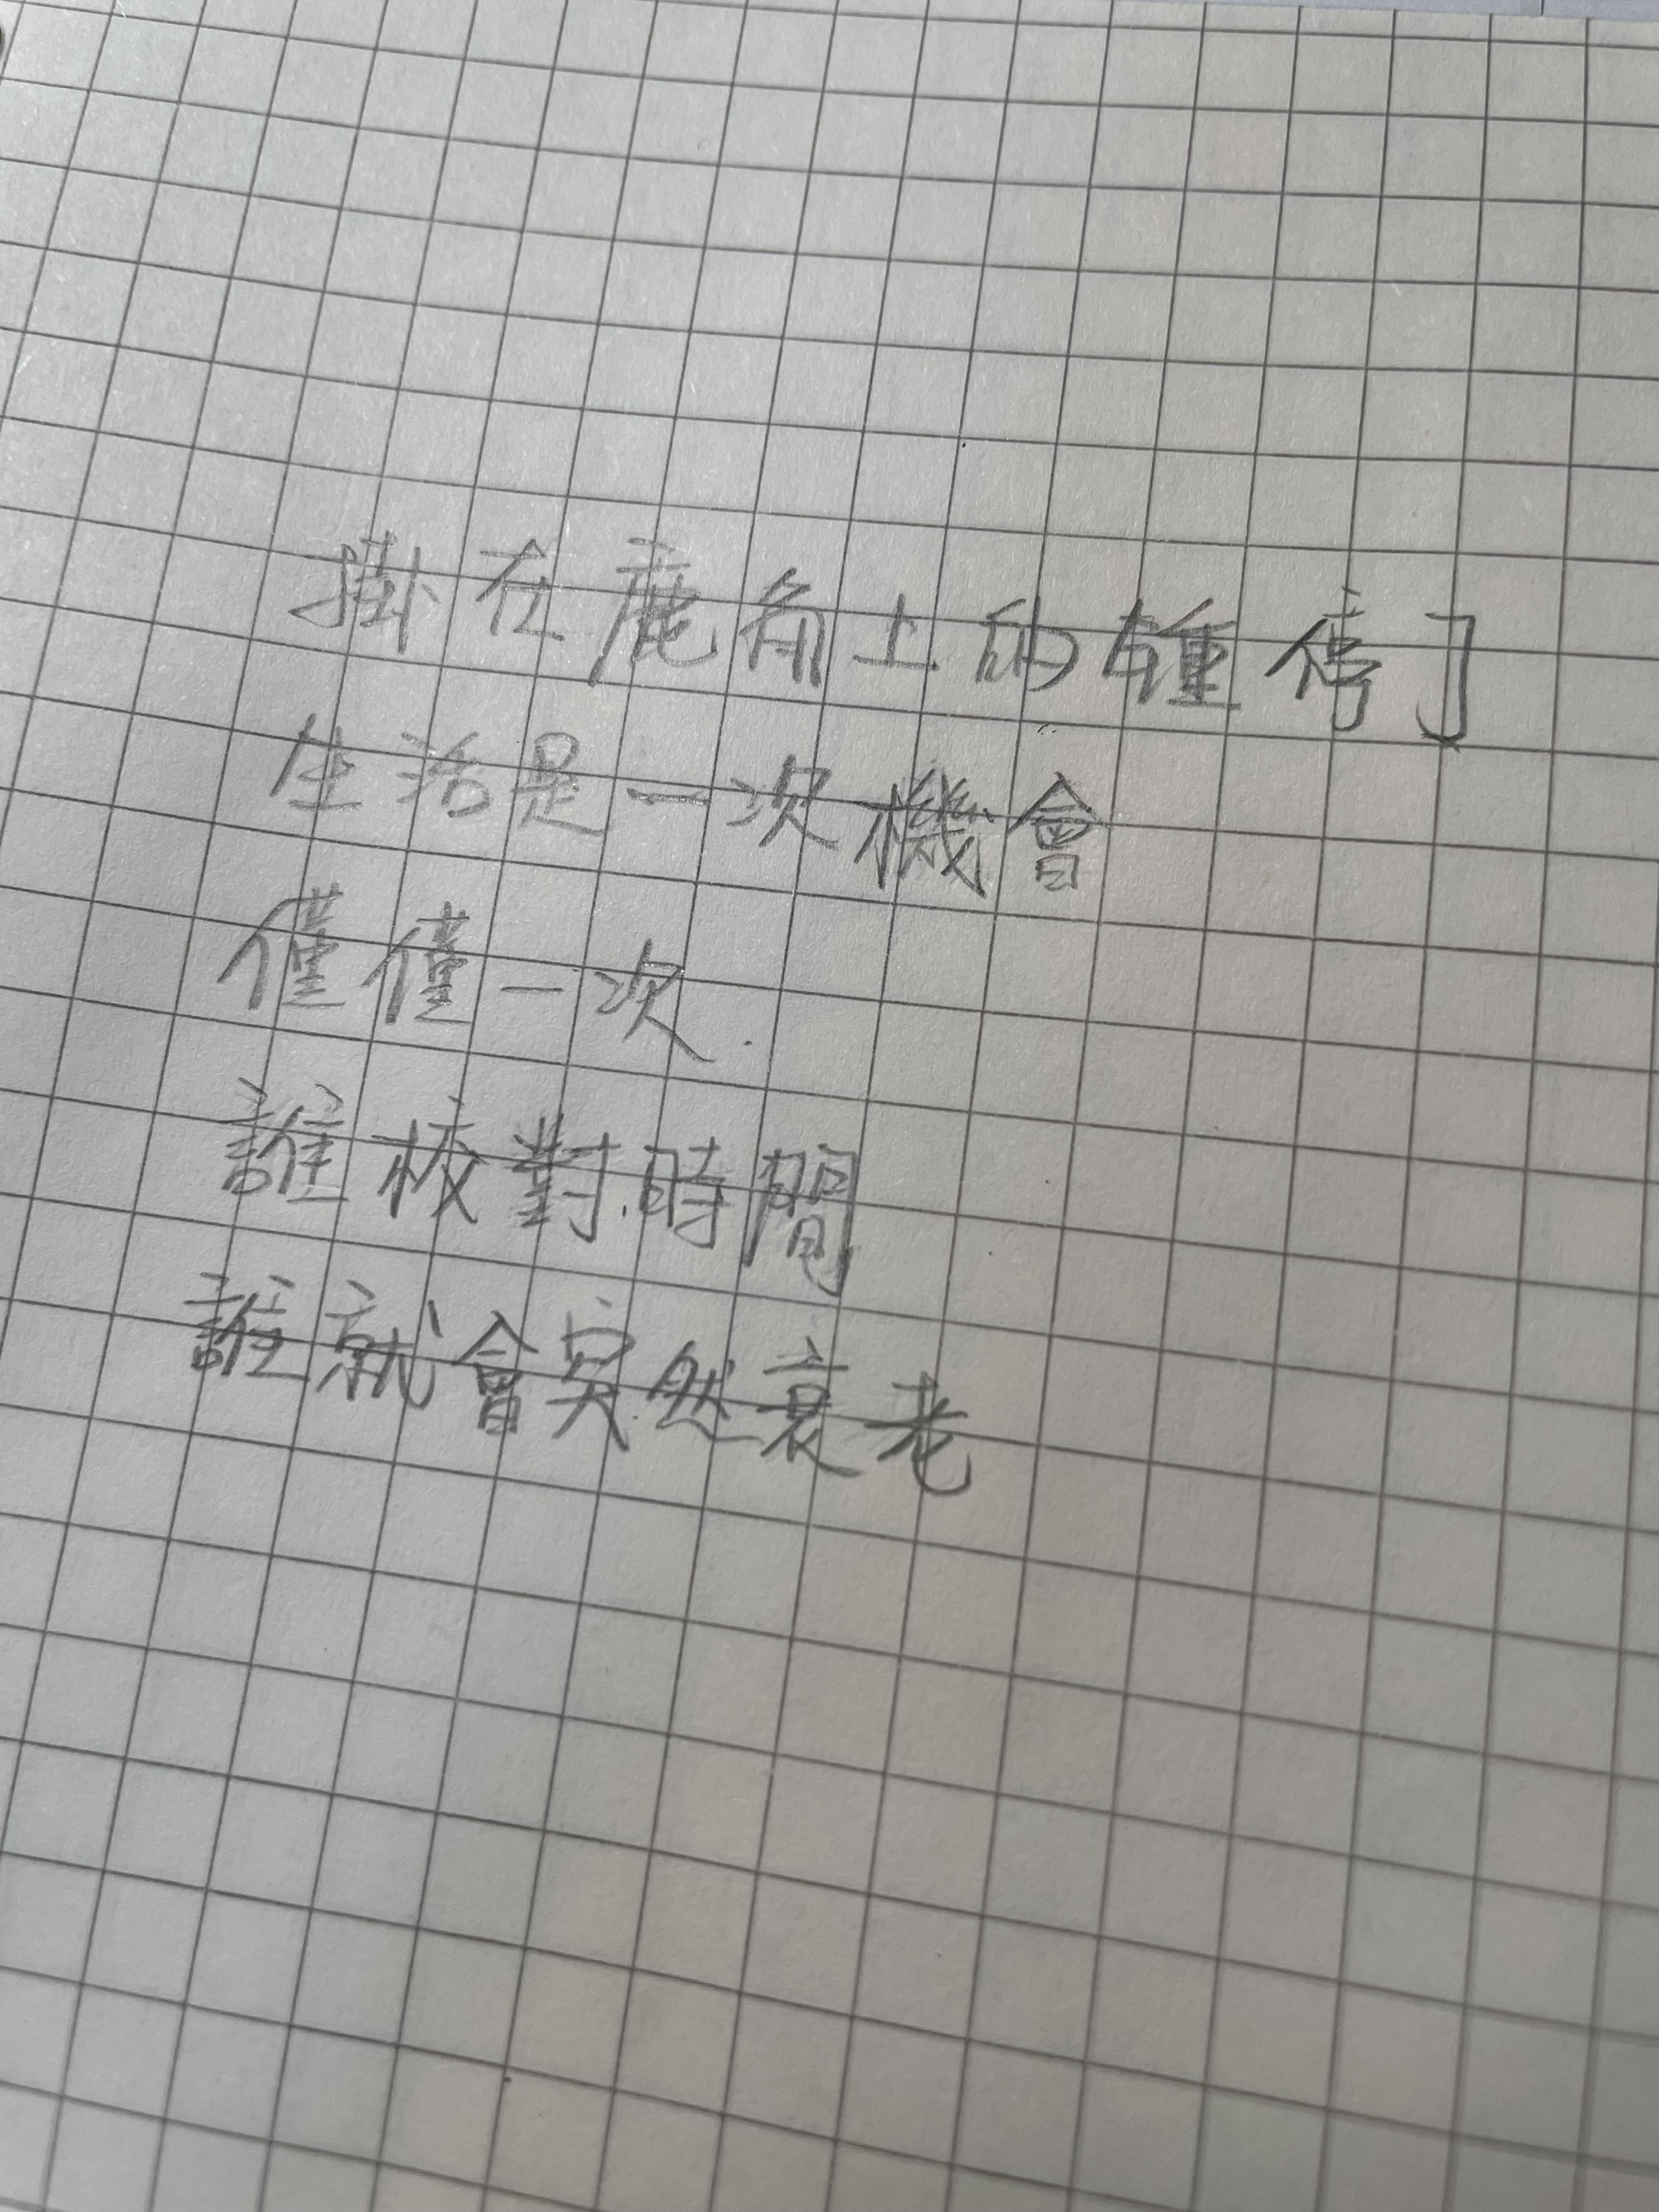 掛在鹿角上的鐘停了
生活是一次機會
僅僅一次
誰校對時間
誰就會突然衰老